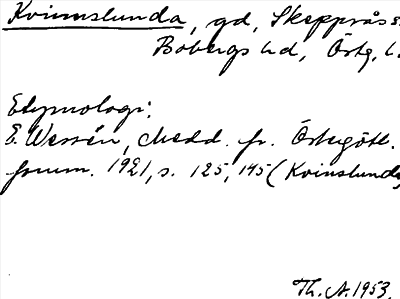 Kvinnslunda, gd, Skeppsås s.
Bobergs hd, Östg. l.
Etymologi:
E. Wessén, Medd. fr. Östergötl.
fornm. 1921, s. 125, 145 (Kvinslunda)
Th. A. 1953.